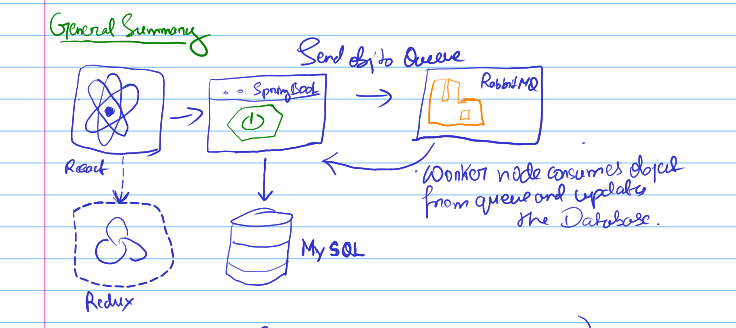 General Summary
Send obj to Queue
SpringBoot
RabbitMQ
React
Worker node consumes object
from queue and updates
the Database.
MySQL
Redux